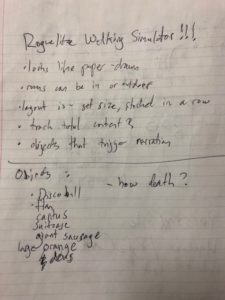 Roguelike Walking Simulator!!!
• looks like paper-drawn
• rooms can be in or outdoor
• layout is - set size, stitched in a row
• track total content?
• objects that trigger narration
Objects:
- how death?
• Disco ball
flag
cactus
suitcase
giant sausage
huge orange
doors